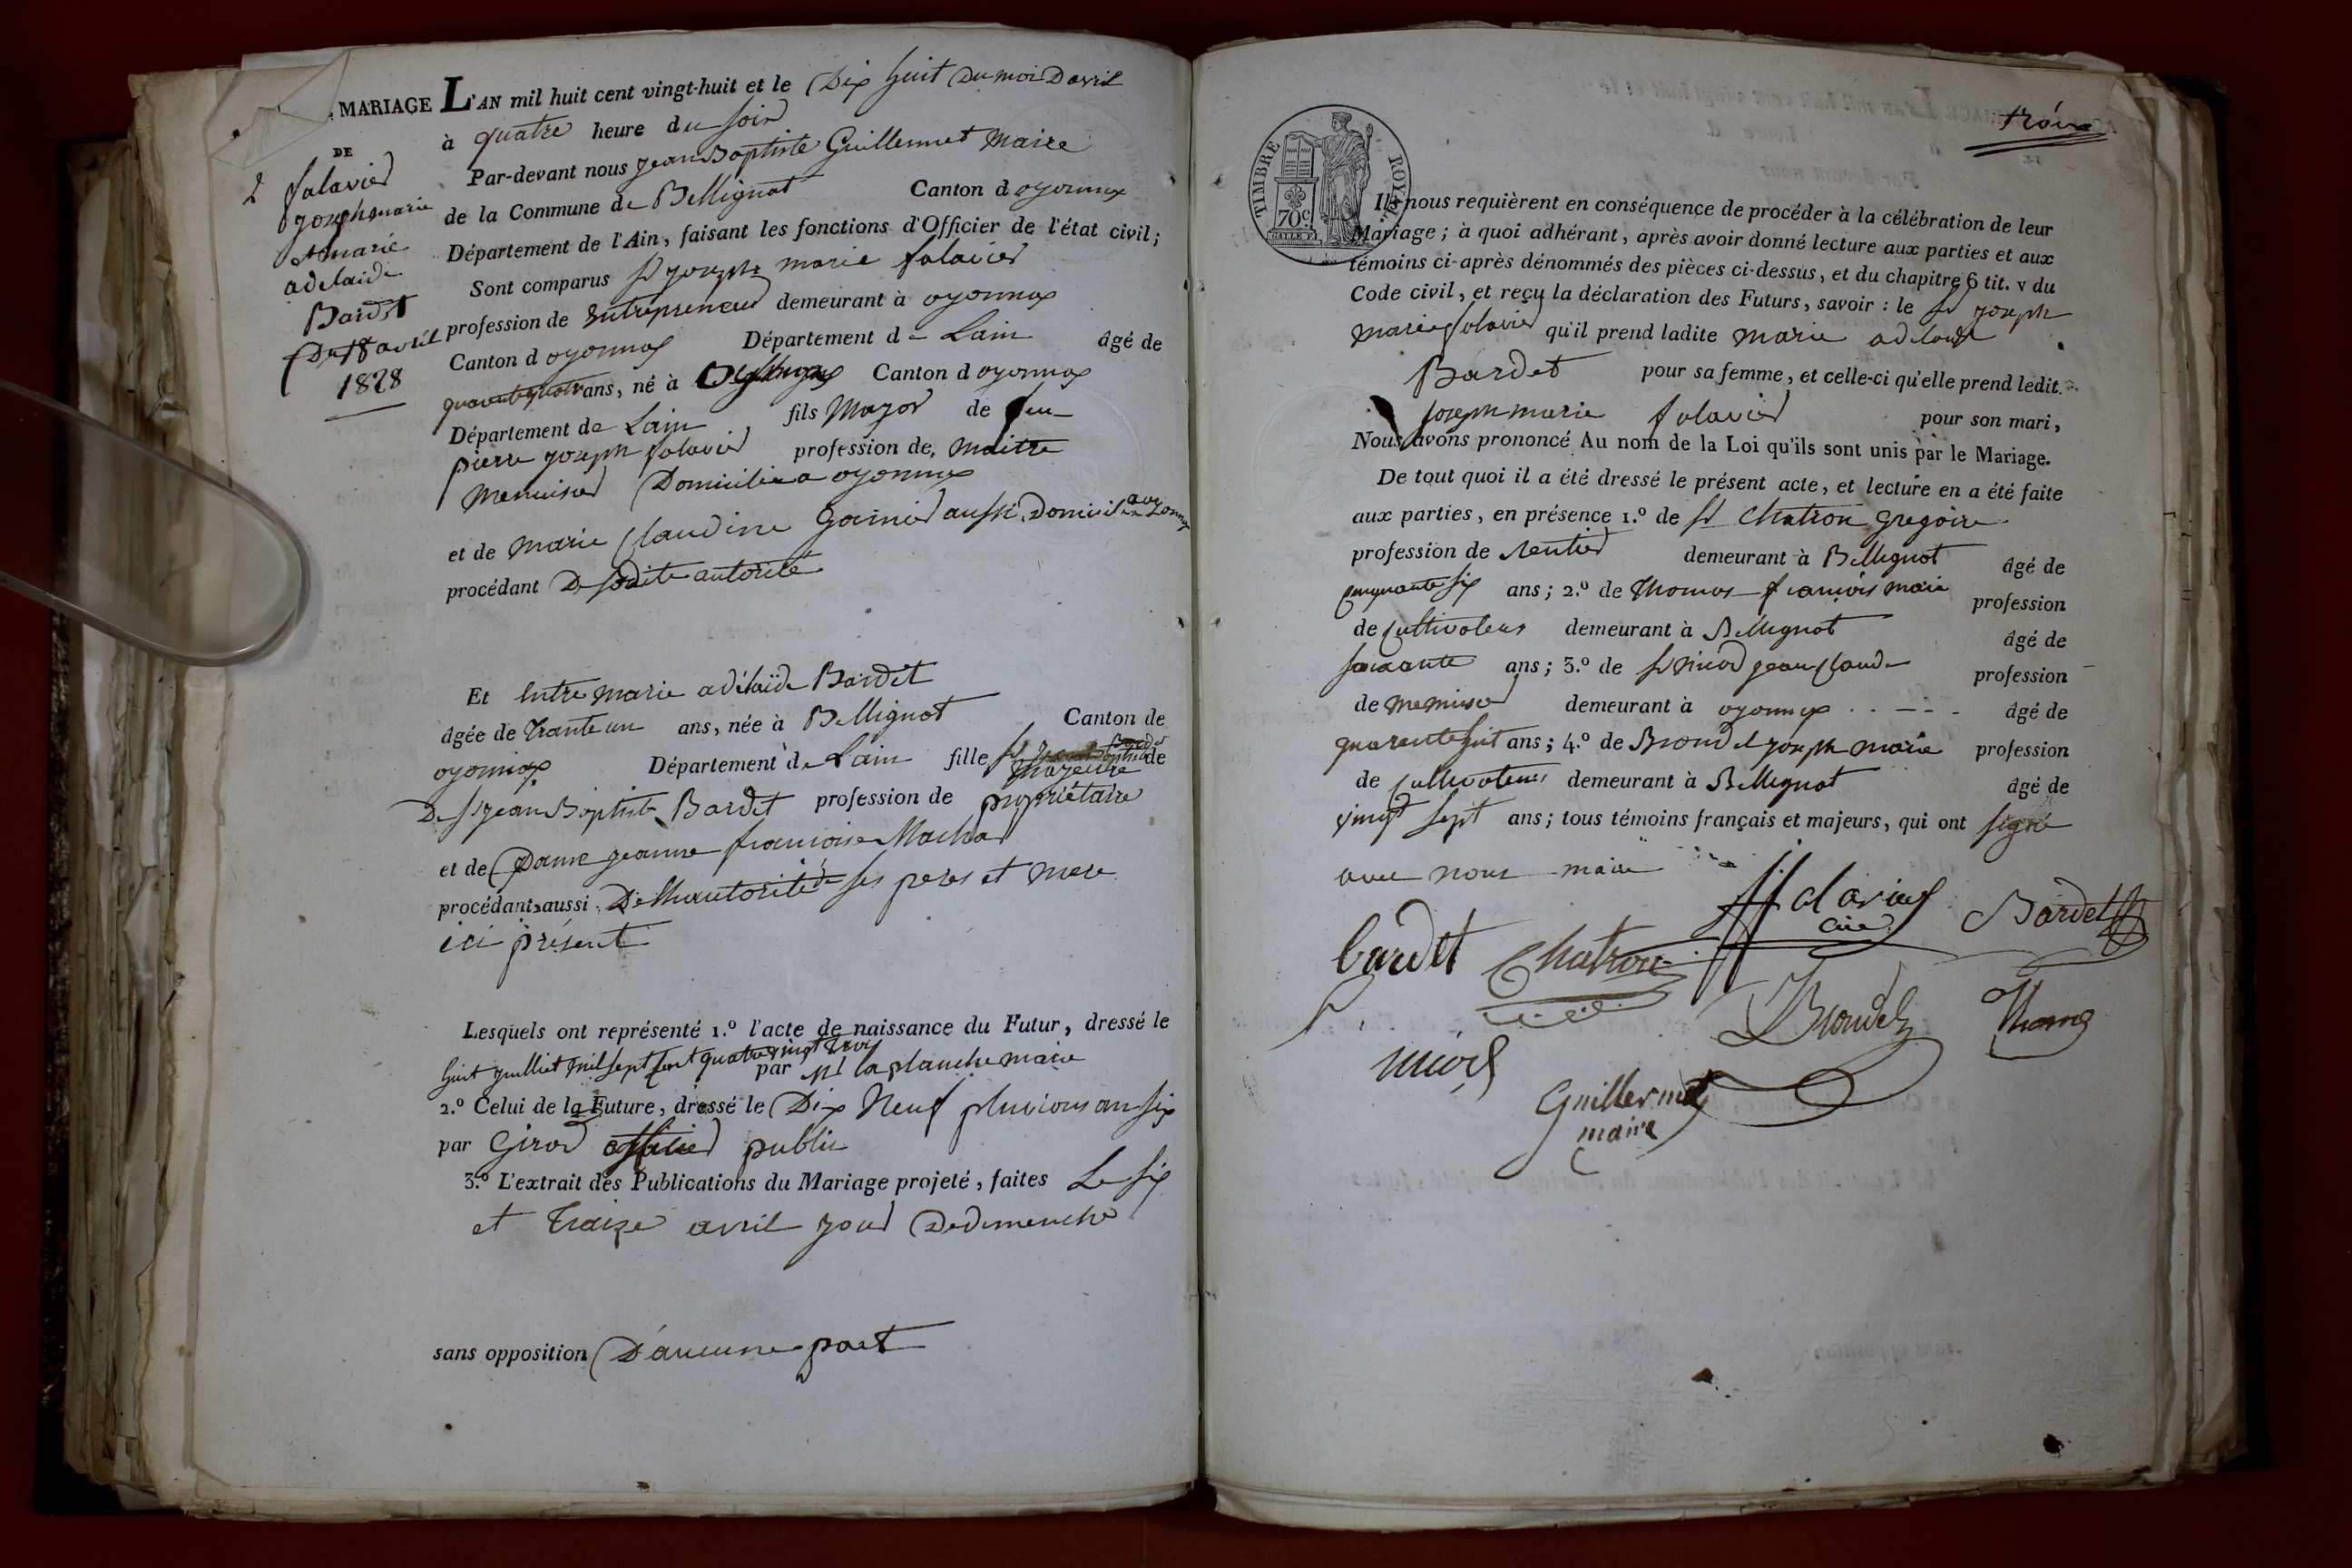 MARIAGE
DE
2 falavier
joseph marie
et marie
adelaide
Bardet
Du 18 avril
1828
L'AN mil huit cent vingt-huit et le Dix huit Du mois Davril
à quatre heure du soir
Par-devant nous jean Baptiste Guillermet Maire
de la Commune de Bellignat Canton d oyonnax
Département de l'Ain, faisant les fonctions d'Officier de l'état civil;
Sont comparus sr joseph marie falavier
profession de Entrepreneur demeurant à oyonnax
Canton d oyonnax Département de Lain âgé de
quarante quatre ans, né à Canton d oyonnax
Département de Lain fils Major de feu
pierre joseph falavier profession de Maitre
Menuisier Domicilié a oyonnax
et de marie Claudine Garnier aussi Domicilié a oyonnax
procédant De sodite autorité
Et Entre marie adélaïde Bardet
âgée de Trante un ans, née à Bellignat Canton de
oyonnax Département de Lain fille majeure de
De sr jean Baptiste Bardet profession de propriétaire
et de Dame jeanne francoise Machar
procédant aussi De lhautorité de ses peres et mere
ici présent
Lesquels ont représenté 1.º l'acte de naissance du Futur, dressé le
huit juilliet mil sept cent quatre vingt trois
par Mr laplanche maire
2.º Celui de la Future, dressé le Dix Neuf pluvious an six
par Girod officier public
3.º L'extrait des Publications du Mariage projeté, faites Le six
et Traize avril jour Dedimenche
sans opposition D'aucune part
TIMBRE ROYAL
70c.
trois
Ils nous requièrent en conséquence de procéder à la célébration de leur
Mariage; à quoi adhérant, après avoir donné lecture aux parties et aux
témoins ci-après dénommés des pièces ci-dessus, et du chapitre 6 tit. v du
Code civil, et reçu la déclaration des Futurs, savoir : le sr joseph
marie falavier qu'il prend ladite marie adelaide
Bardet pour sa femme, et celle-ci qu'elle prend ledit
joseph marie falavier pour son mari,
Nous avons prononcé Au nom de la Loi qu'ils sont unis par le Mariage.
De tout quoi il a été dressé le présent acte, et lecture en a été faite
aux parties, en présence 1.º de sr Chatron gregoire
profession de rentier demeurant à Bellignat âgé de
cinquante six ans; 2.º de Thomas francois marie profession
de Cultivateur demeurant à Bellignat âgé de
soixante ans; 3.º de sr nicod jean Claude profession
de menuisier demeurant à oyonnax âgé de
quarente huit ans; 4.º de Brondel joseph marie profession
de Cultivateur demeurant à Bellignat âgé de
vingt sept ans; tous témoins français et majeurs, qui ont signé
avec nous maire
Bardet
bardet Chatron
Brondel Thomas
nicod
Guillermet
maire